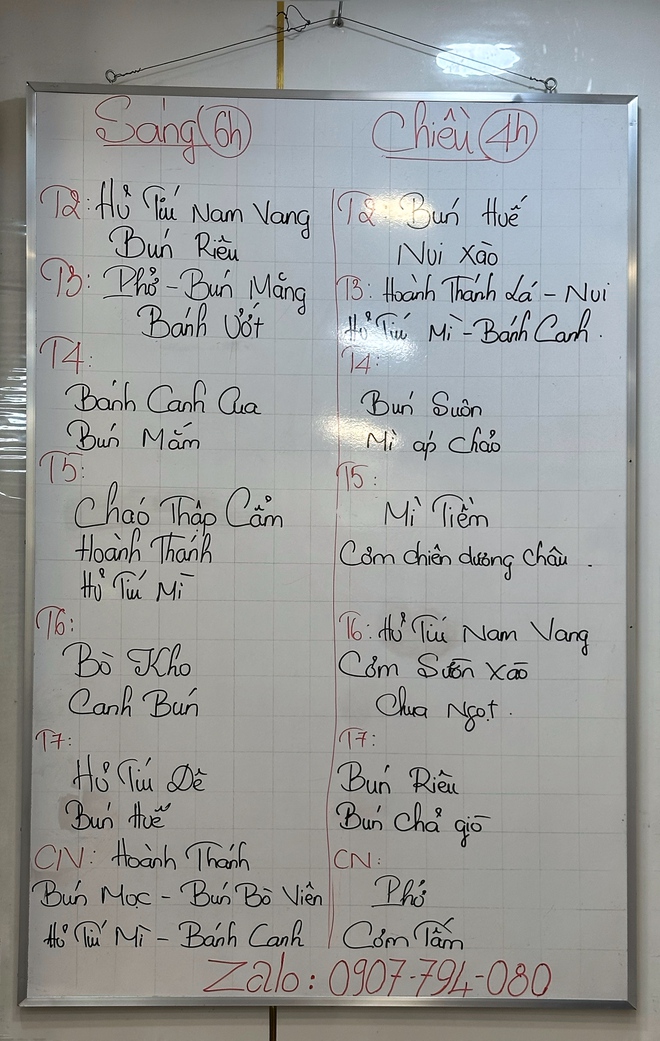 Sáng 6h
T2: Hủ Tíu Nam Vang
Bún Riêu
T3: Phở - Bún Măng
Bánh Ướt
T4:
Bánh Canh Cua
Bún Mắm
T5:
Cháo Thập Cẩm
Hoành Thánh
Hủ Tíu Mì
T6:
Bò Kho
Canh Bún
T7:
Hủ Tíu Dê
Bún Huế
CN: Hoành Thánh
Bún Mọc - Bún Bò Viên
Hủ Tíu Mì - Bánh Canh
Chiều 4h
T2: Bún Huế
Nui Xào
T3: Hoành Thánh Lá - Nui
Hủ Tíu Mì - Bánh Canh.
T4:
Bún Suôn
Mì áp chảo
T5:
Mì Tiềm
Cơm chiên dương châu.
T6: Hủ Tíu Nam Vang
Cơm Sườn Xào
Chua Ngọt.
T7:
Bún Riêu
Bún chả giò
CN:
Phở
Cơm Tấm
Zalo: 0907-794-080